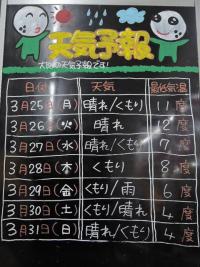 天気予報
大阪の天気予報です!
日付 天気 最低気温
3月25日(月) 晴れ/くもり 11度
3月26日(火) 晴れ 12度
3月27日(水) 晴れ/くもり 7度
3月28日(木) くもり 8度
3月29日(金) くもり/雨 6度
3月30日(土) くもり/晴れ 4度
3月31日(日) 晴れ/くもり 4度